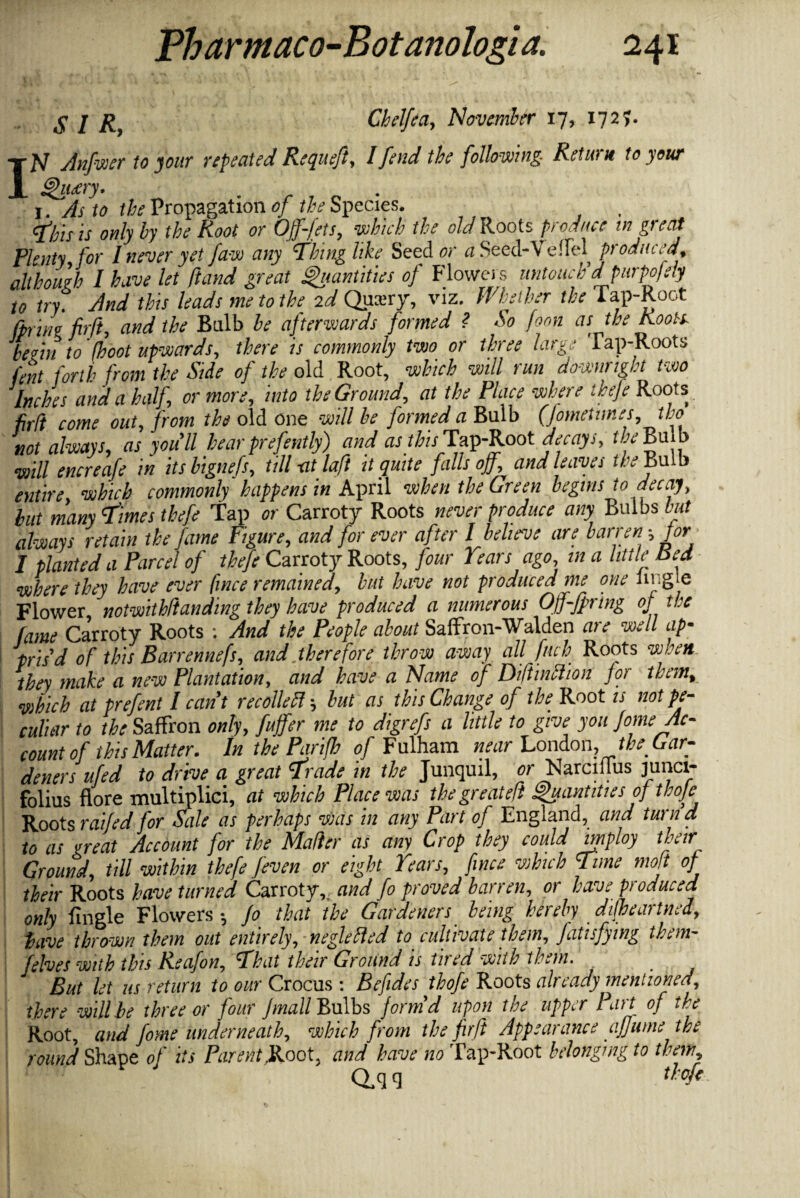 Pharmaco-Botanologia. 241
SIR, Chelſea, November 17, 1725.
IN Anſwer to your repeated Requeſt, I ſend the following Return to your
Quæry.
1. As to the Propagation of the Species.
This is only by the Root or Off-ſets, which the old Roots produce in great
Plenty, for I never yet ſaw any Thing like Seed or a Seed-Veſſel produced,
although I have let ſtand great Quantities of Flowers untouch'd purpoſely
to try. And this leads me to the 2d Quæry, viz. Whether the Tap-Root
ſpring firſt, and the Bulb be afterwards formed ? So ſoon as the Roots
begin to ſhoot upwards, there is commonly two or three large Tap-Roots
ſent forth from the Side of the old Root, which will run downright two
Inches and a half, or more, into the Ground, at the Place where theſe Roots
firſt come out, from the old one will be formed a Bulb (ſometimes, tho'
not always, as you'll hear preſently) and as this Tap-Root decays, the Bulb
will encreaſe in its bigneſs, till at laſt it quite falls off, and leaves the Bulb
entire, which commonly happens in April when the Green begins to decay,
but many Times theſe Tap or Carroty Roots never produce any Bulbs but
always retain the ſame Figure, and for ever after I believe are barren ; for
I planted a Parcel of theſe Carroty Roots, four Years ago, in a little Bed
where they have ever ſince remained, but have not produced me one ſingle
Flower, notwithſtanding they have produced a numerous Off-ſpring of the
ſame Carroty Roots : And the People about Saffron-Walden are well ap-
pris'd of this Barrenneſs, and therefore throw away all ſuch Roots when
they make a new Plantation, and have a Name of Diſtinction for them,
which at preſent I can't recollect ; but as this Change of the Root is not pe-
culiar to the Saffron only, ſuffer me to digreſs a little to give you ſome Ac-
count of this Matter. In the Pariſh of Fulham near London, the Gar-
deners uſed to drive a great Trade in the Junquil, or Narciſſus junci-
folius flore multiplici, at which Place was the greateſt Quantities of thoſe
Roots raiſed for Sale as perhaps was in any Part of England, and turn'd
to as great Account for the Maſter as any Crop they could imploy their
Ground, till within theſe ſeven or eight Years, ſince which Time moſt of
their Roots have turned Carroty, and ſo proved barren, or have produced
only ſingle Flowers ; ſo that the Gardeners being hereby diſheartned,
have thrown them out entirely, neglected to cultivate them, ſatisfying them-
ſelves with this Reaſon, That their Ground is tired with them.
But let us return to our Crocus : Beſides thoſe Roots already mentioned,
there will be three or four ſmall Bulbs form'd upon the upper Part of the
Root, and ſome underneath, which from the firſt Appearance aſſume the
round Shape of its Parent Root, and have no Tap-Root belonging to them,
Qqq thoſe